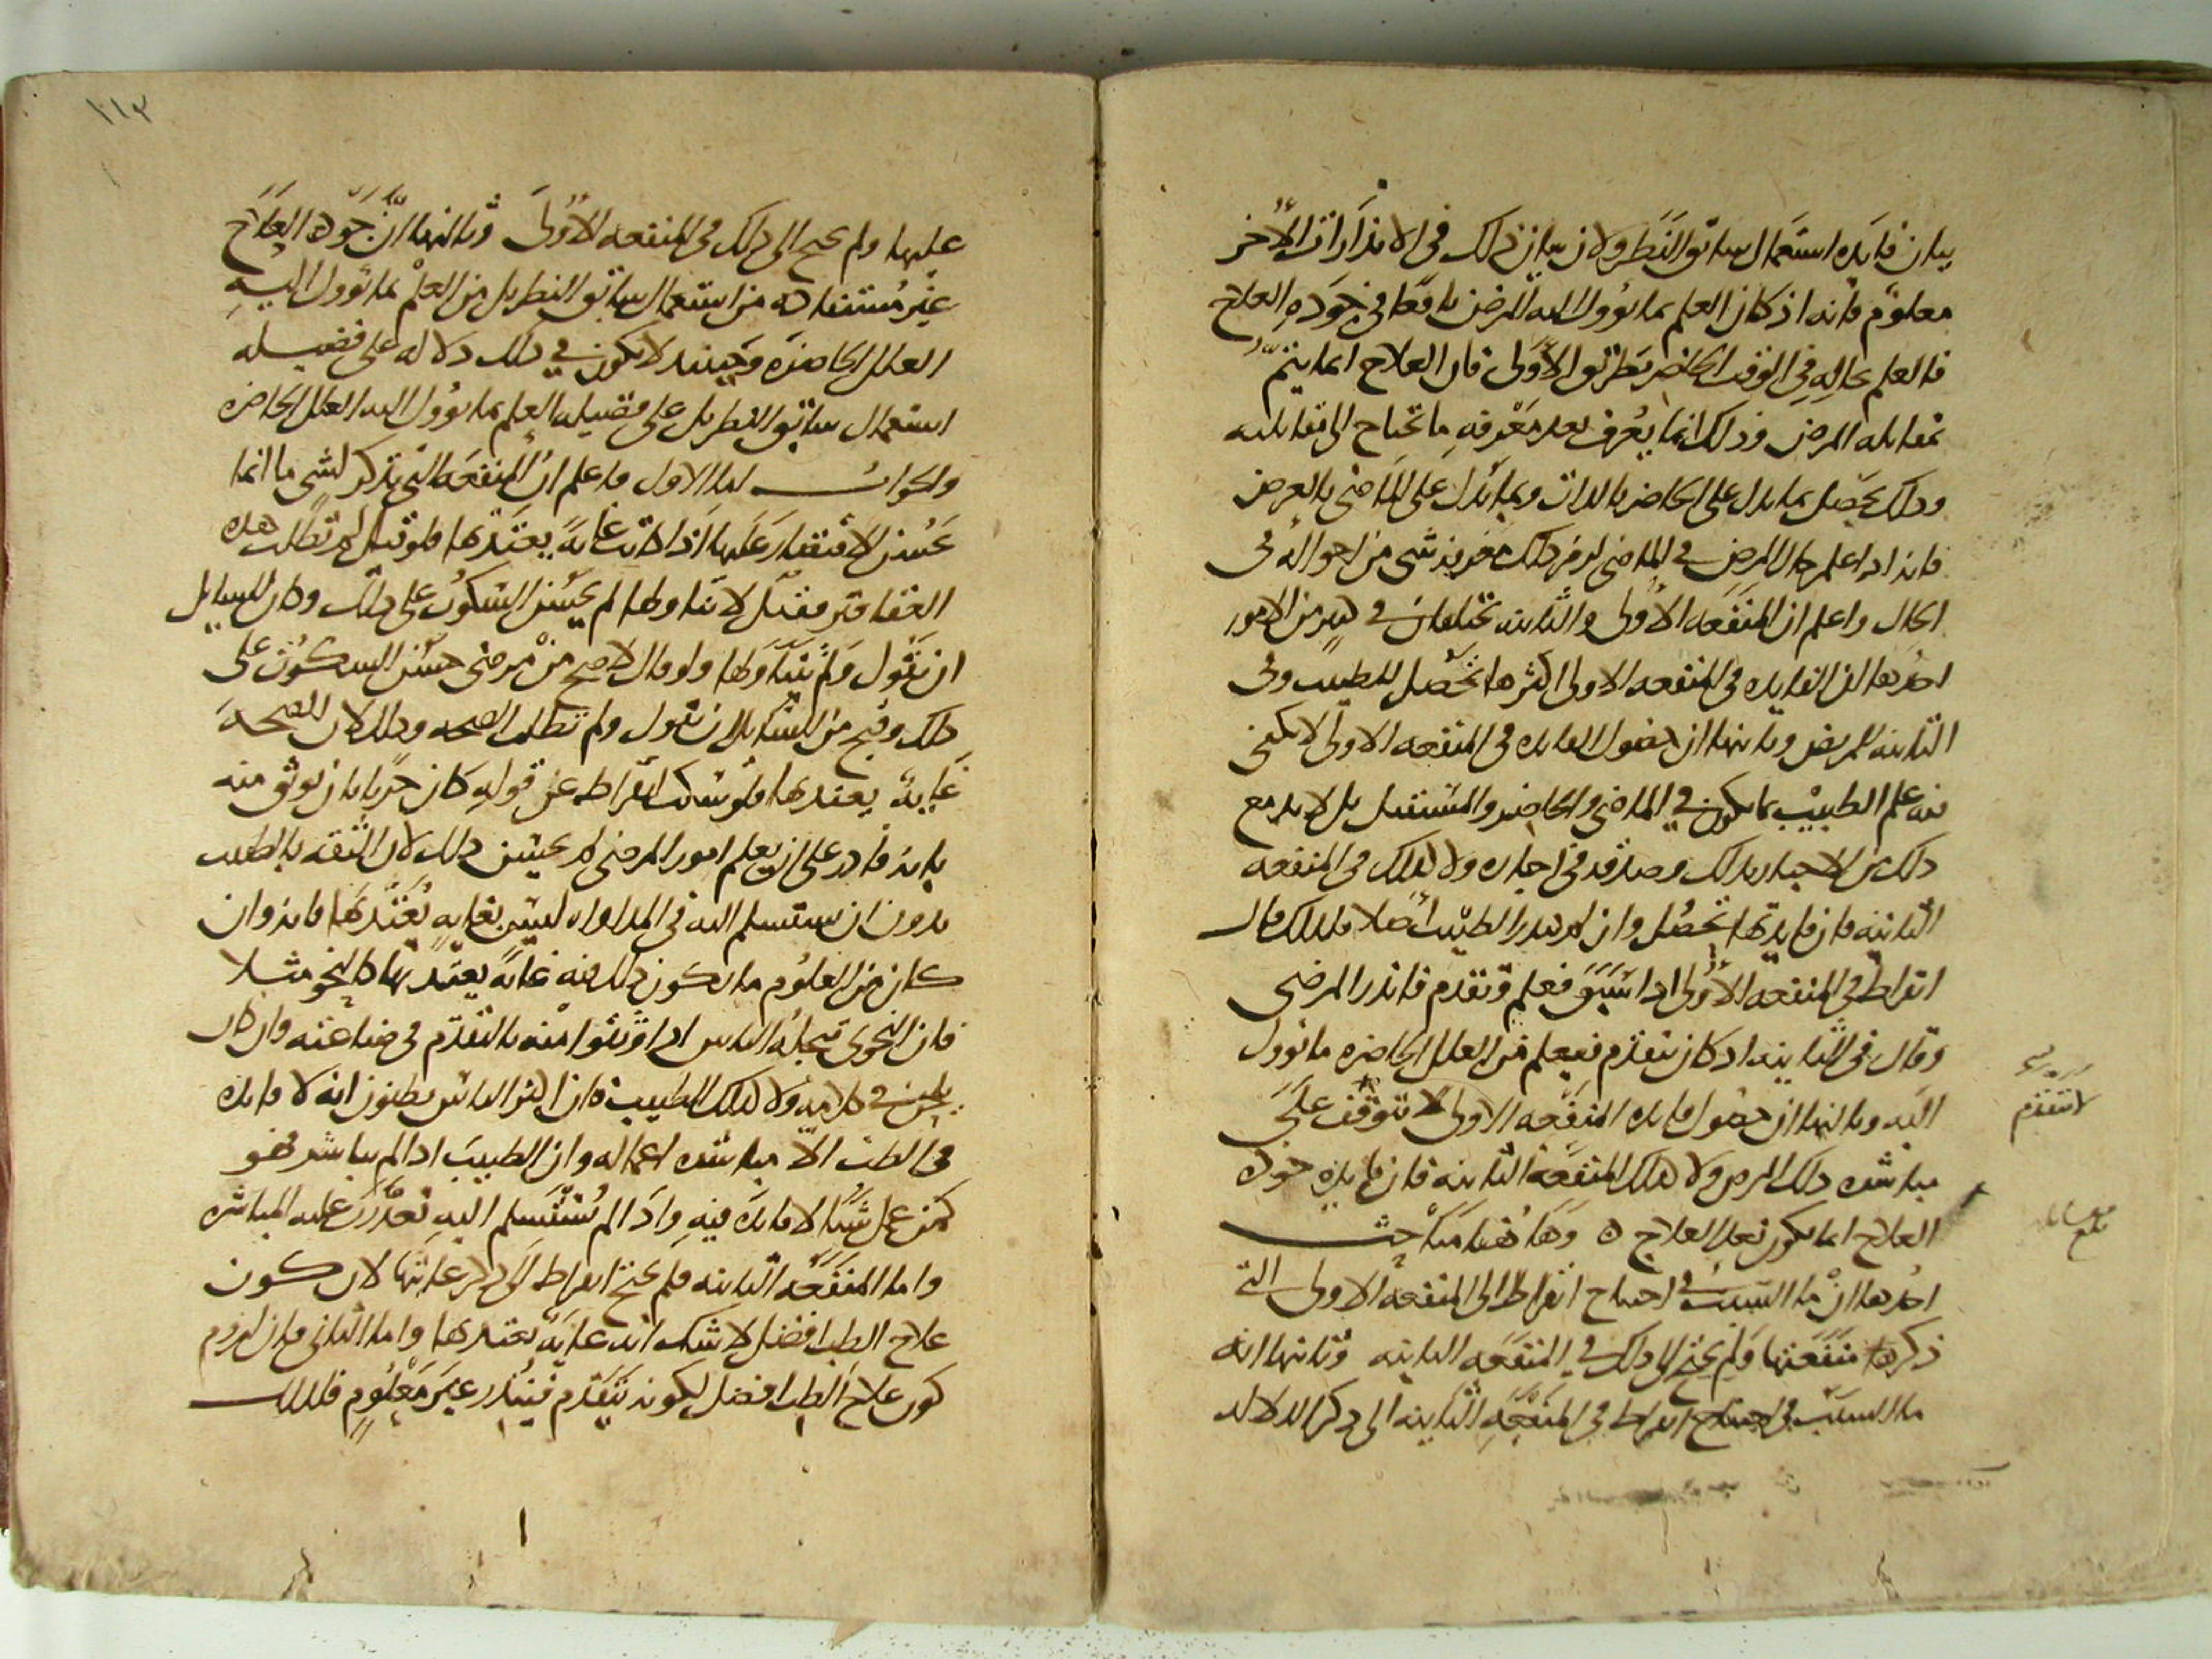 بيان فايده استعمال سابق النظر ولان بيان ذلك في الانذارات الأخر
معلوم فانه اذ كان العلم بما يؤول اليه المرض نافعا في جودة العلاج
فالعلم بحاله في الوقت الحاضر بطريق الأولى فان العلاج انما يتم
بمقابلة المرض وذلك انما يعرف بعد معرفة ما تحتاج الى مقابلته
وذلك يحصل بما يدل على الحاضر بالذات وبما يدل على الماضي بالعرض
فانه اذا علم حال المرض في الماضي لزم ذلك شي من احواله في
الحال واعلم ان المنفعه الأولى والثانيه تختلفان في من الامور
احدها ان الفايده في المنفعه الاولى اكثرها تحصل للطبيب وفي
الثانيه للمريض وثانيها ان حصول الفايده في المنفعه الاولى لا يكفي
فيه علم الطبيب بما يكون في الماضي والحاضر والمستقبل بل لا بد مع
ذلك من الاخبار بذلك وصدقه في اخباره ولا كذلك في المنفعه
الثانيه فان فايدتها تحصل وان لم ينذر الطبيب أصلا فلذلك قال
ابقراط في المنفعه الأولى اذا سبق فعلم وتقدم فانذر المرضى
وقال في الثانيه اذ كان يتقدم فيعلم من العلل الحاضره ما تؤول
اليه وثالثها ان حصول فايده المنفعه الاولى لا تتوقف على
مباشره ذلك المرض ولا كذلك المنفعة الثانيه فان فايده جوده
العلاج انما يكون بفعل العلاج ه وهاهنا مباحث
احدها ان ما السبب في احتياج ابقراط الى المنفعه الاولى التي
ذكرها منفعتها ولم يحتج الى ذلك في المنفعه الثانيه وثانيها انه
ما السبب في احتياج ابقراط في المنفعه الثانيه الى ذكر الدلاله
لا يتقدم
بلغ مقابله
١١٣
عليها ولم يحتج الى ذلك في المنفعه الأولى وثالثها ان جودة العلاج
غير مستفاده من استعمال سابق النظر بل من العلم بما تؤول اليه
العلل الحاضرة وحينئذ لا يكون في ذلك دلاله على فضيله
استعمال سابق النظر بل على فضيله العلم بما يؤول اليه العلل الحاضره
والجواب اما الاول فاعلم ان المنفعة التي تذكر لشي ما انما
يحسن الاقتصار عليها اذا كانت غاية يعتد بها فلو قيل لم تطلب هذه
العقاقير فقيل لاتناولها لم يحسن السكوت على ذلك وكان للسايل
ان يقول ولم تتناولها ولو قال لاصح من مرضي حسن السكوت على
ذلك وقبح من السايل ان يقول ولم تطلب الصحه وذلك لان الصحة
غاية يعتد بها فلو سكت ابقراط عن قوله كان حريا بان يوثق منه
بانه قادر على ان يعلم امور المرضى لم يحسن ذلك لان الثقه بالطبيب
بدون ان يستسلم اليه في المداواه ليس بغايه يعتد بها فانه وان
كان من العلوم ما يكون ذلك فيه غاية يعتد بها كالنحو مثلا
فان النحوي تجله الناس اذا وثقوا منه بالتقدم في صناعته وان كان
يلحن في كلامه ولا كذلك الطبيب فان اكثر الناس يظنون انه لا فايده
في الطب الا مباشره اعماله وان الطبيب اذا لم يباشر فهو
كمن عمل شيا لا فايده فيه واذا لم يستسلم اليه تعذرت عليه المباشره
واما المنفعه الثانيه فلم يحتج ابقراط الى ذكر غايتها لان كون
علاج الطب افضل لا شك انه غاية يعتد بها واما الثاني فان لزوم
كون علاج الطب افضل لكونه يتقدم فينذر غير معلوم فلذلك